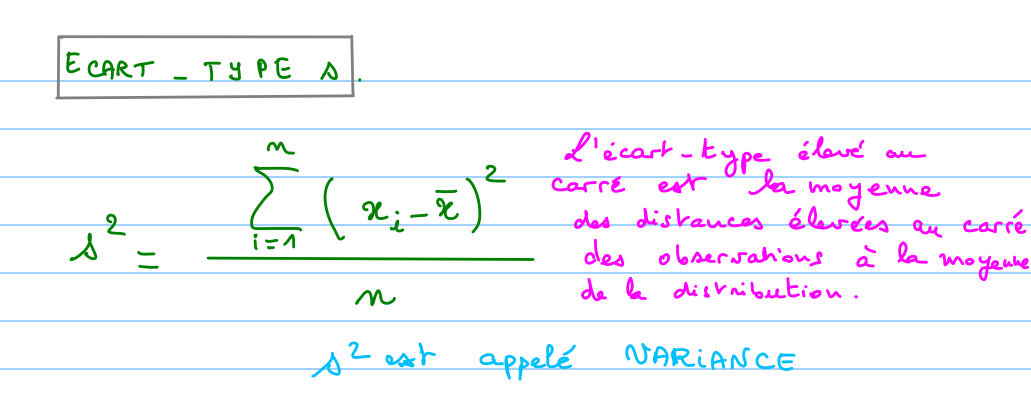 ECART-TYPE s.
s² = \frac{\sum_{i=1}^{n} (x_i - \bar{x})^2}{n}
L'écart-type élevé au
carré est la moyenne
des distances élevées au carré
des observations à la moyenne
de la distribution.
s² est appelé VARIANCE